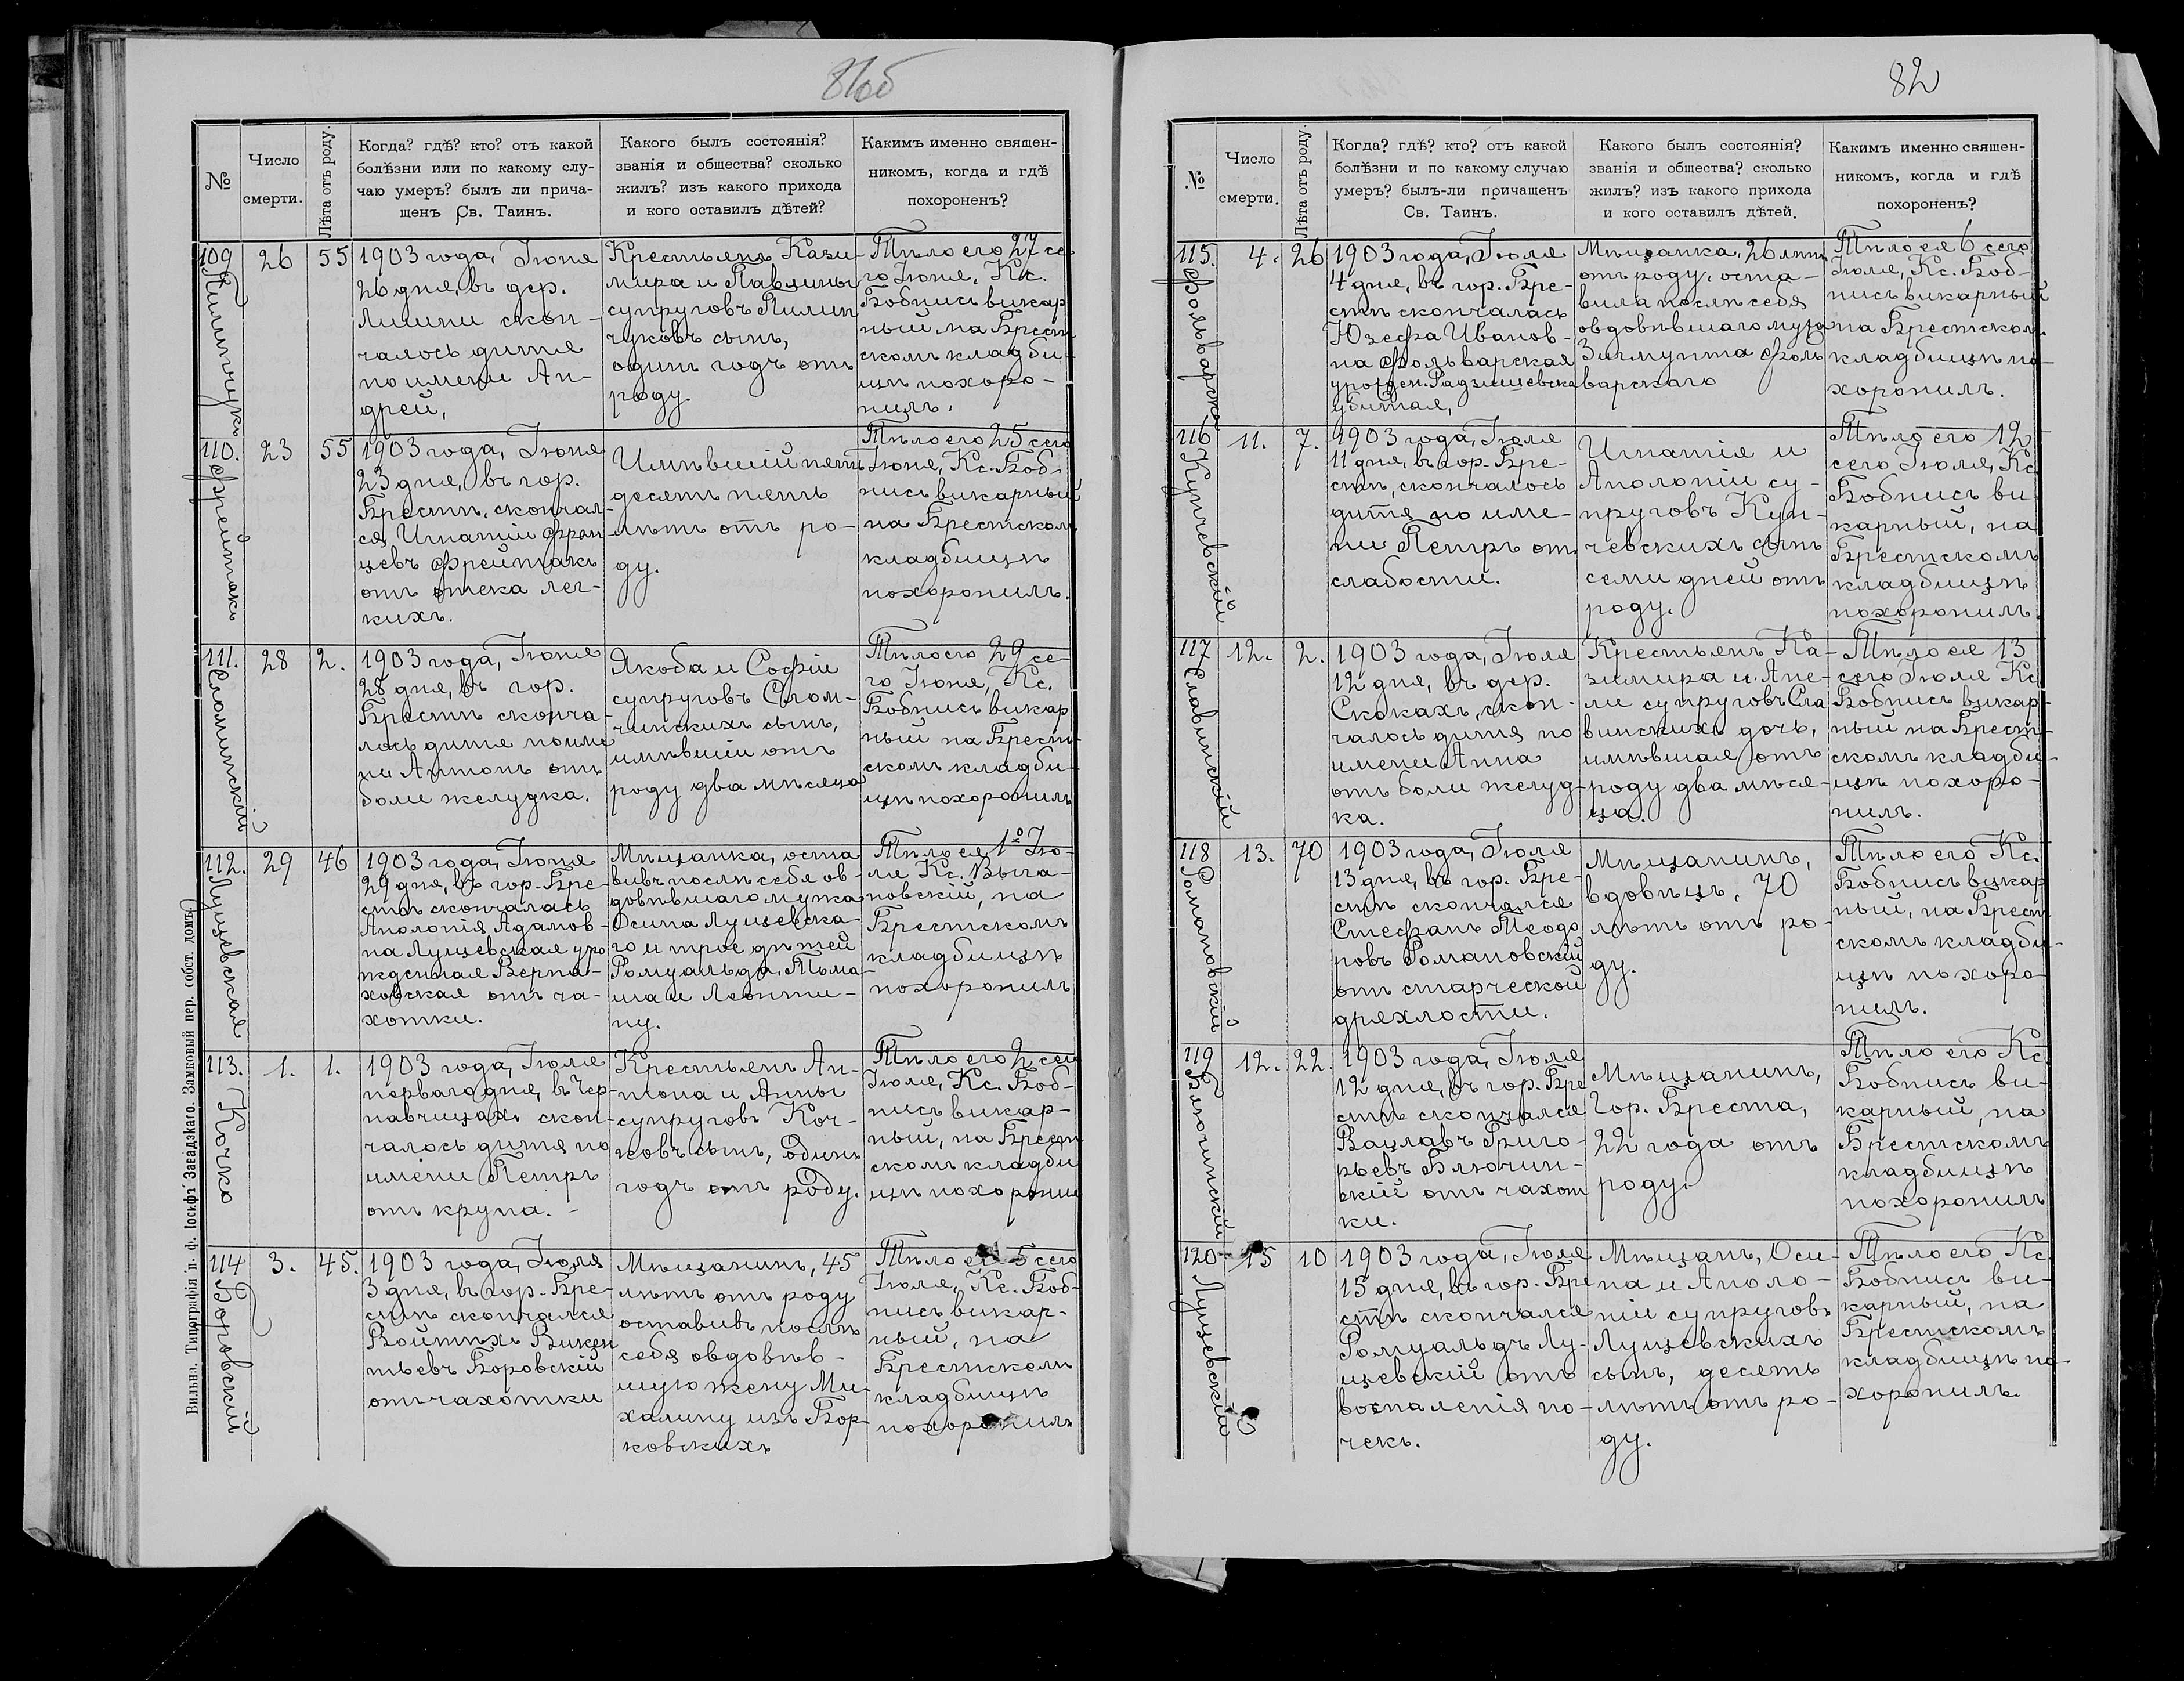 81об
№
Число
смерти.
Лѣта отъ роду.
Когда? гдѣ? кто? отъ какой
болѣзни или по какому слу-
чаю умеръ? былъ ли прича-
щенъ Св. Таинъ.
Какого былъ состоянія?
званія и общества? сколько
жилъ? изъ какого прихода
и кого оставилъ дѣтей?
Какимъ именно священ-
никомъ, когда и гдѣ
похороненъ?
109
Пилипчукъ
26
55
1903 года, Іюня
26 дня, въ дер.
скон-
чалось дитя
по имени Ан-
дрей,
Крестьянъ Кази-
мира и Павлины
супруговъ Пилип
чуковъ сынъ,
одинъ годъ отъ
роду.
Тѣло его 27 се
го Іюня, Кс.
Бобнисъ викар
ный на Брест
скомъ кладби-
щѣ похоро-
нилъ.
110.
Фрейтакъ
23
55
1903 года, Іюня
23 дня, въ гор.
Брестѣ, скончал-
ся Игнатій Фран
цевъ Фрейтакъ
отъ отека лег-
кихъ.
Имѣвшій пять
десятъ пять
лѣтъ отъ ро-
ду.
Тѣло его 25 сего
Іюня, Кс. Боб-
нисъ викарный
на Брестскомъ
кладбищѣ
похоронилъ.
111.
Сломинскій
28
2.
1903 года, Іюня
28 дня, въ гор.
Брестѣ сконча-
лось дитя по име
ни Антонъ отъ
боли желудка.
Якоба и Софіи
супруговъ Слом-
чинскихъ сынъ,
имѣвшій отъ
роду два мѣсяца
Тѣло его 29 се-
го Іюня, Кс.
Бобнисъ викар
ный на Брест-
скомъ кладби-
щѣ похоронилъ
112.
Лущевская
29
46
1903 года, Іюня
29 дня, въ гор. Бре-
стѣ скончалась
Аполонія Адамов-
на Лущевская уро
жденная Верна-
ховская отъ ча-
хотки.
Мѣщанка, оста
вивъ послѣ себя ов-
довѣвшаго мужа
Осипа Лущевска-
го и трое дѣтей
Ромуальда, Тома-
ша и Леонти-
ну.
Тѣло ея 1º Ію-
ля Кс. Выга-
новскій, на
Брестскомъ
кладбищѣ
похоронилъ
113.
Кочко
1.
1.
1903 года, Іюля
перваго дня, въ Чер-
навчицахъ скон-
чалось дитя по
имени Петръ
отъ крупа.
Крестьянъ Ан-
тона и Анны
супруговъ Коч-
ковъ сынъ, одинъ
годъ отъ роду.
Тѣло его 2 сего
Іюля, Кс. Боб-
нисъ викар-
ный, на Брест
скомъ кладби
щѣ похорони
114
Боровскій
3.
45.
1903 года, Іюля
3 дня, въ гор. Бре-
стѣ скончался
Войтѣхъ Викен
тьевъ Боровскій
отъ чахотки
Мѣщанинъ, 45
лѣтъ отъ роду
оставивъ послѣ
себя овдовѣв-
шую жену Ми-
халину изъ Бор-
ковскихъ
Тѣло его 5 сего
Іюля, Кс. Боб-
нисъ викар-
ный, на
Брестскомъ
кладбищѣ
похоронилъ
Вильна. Типографія п. ф. Іосифъ Завадзкаго. Замковый пер. собст. домъ.
82
№
Число
смерти.
Лѣта отъ роду.
Когда? гдѣ? кто? отъ какой
болѣзни и по какому случаю
умеръ? былъ-ли причащенъ
Св. Таинъ.
Какого былъ состоянія?
званія и общества? сколько
жилъ? изъ какого прихода
и кого оставилъ дѣтей.
Какимъ именно священ-
никомъ, когда и гдѣ
похороненъ?
115.
Фольварска
4.
26
1903 года, Іюля
4 дня, въ гор. Бре-
стѣ скончалась
Юзефа Иванов-
на Фольварская
урожден. Радзишевска
убитая,
Мѣщанка, 26 лѣтъ
отъ роду, оста-
вила послѣ себя
овдовѣвшаго мужа
Зигмунта Фоль
варскаго
Тѣло ея 6 сего
Іюля, Кс. Боб-
нисъ викарный
на Брестском
кладбищѣ по-
хоронилъ.
116
Купчевскій
11.
7.
1903 года, Іюля
11 дня, въ гор. Бре-
стѣ, скончалось
дитя по име-
ни Петръ отъ
слабости.
Игнатія и
Аполоніи су-
пруговъ Куп-
чевскихъ сынъ
семи дней отъ
роду.
Тѣло его 12
сего Іюля, Кс
Бобнисъ ви-
карный, на
Брестскомъ
кладбищѣ
похоронилъ
117
Славинскій
12.
2.
1903 года, Іюля
12 дня, въ дер.
Скокахъ, скон-
чалось дитя по
имени Анна
отъ боли желуд-
ка.
Крестьянъ Ка-
зимира и Ане-
ли супруговъ Сла
винскихъ дочь,
имѣвшая отъ
роду два мѣся-
ца.
Тѣло ея 13
сего Іюля Кс
Бобнисъ викар-
ный на Брест-
скомъ кладби-
щѣ похоро-
нилъ.
118
Романовскій
13.
70
1903 года, Іюля
13 дня, въ гор. Бре-
стѣ скончался
Стефанъ Теодо
ровъ Романовскій
отъ старческой
дряхлости.
Мѣщанинъ,
вдовецъ, 70
лѣтъ отъ ро-
ду.
Тѣло его Кс.
Бобнисъ викар
ный, на Брест
скомъ кладби-
щѣ похоро-
нилъ.
119
Блючинскій
12.
22.
1903 года, Іюля
12 дня, въ гор. Бре
стѣ скончался
Вацлавъ Григо-
рьевъ Блючин-
скій отъ чахот
ки.
Мѣщанинъ,
Гор. Бреста,
22 года отъ
роду.
Тѣло его Кс
Бобнисъ ви-
карный, на
Брестскомъ
кладбищѣ
похоронилъ
120
Лущевскій
15
10
1903 года, Іюля
15 дня, въ гор. Бре
стѣ скончался
Ромуальдъ Лу-
щевскій отъ
воспаленія по-
чекъ.
Мѣщанъ, Оси-
па и Аполо-
ніи супруговъ
Лущевскихъ
сынъ, десять
лѣтъ отъ ро-
ду.
Тѣло его Кс
Бобнисъ ви-
карный, на
Брестскомъ
кладбищѣ по-
хоронилъ.